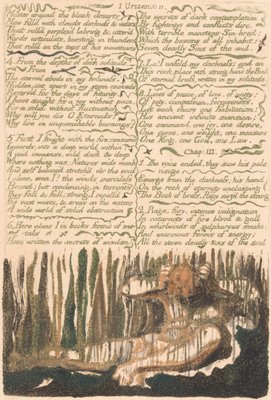 I URIZEN. II
Muster around the bleak desarts;
Now fill'd with clouds darkness & waters
That roll'd perplex'd labring & utter'd
Words articulate, bursting in thunders
That roll'd on the tops of his mountains
4. From the depths of dark solitude.
From
The eternal abode in my holiness,
Hidden, set apart in my stern counsels
Reserv'd for the days of futurity,
I have sought for a joy without pain,
For a solid without fluctuation
Why will you die O Eternals?
Why live in unquenchable burnings?
5. First I fought with the fire; consum'd
Inwards, into a deep world within:
A void immense, wild dark & deep,
Where nothing was; Natures wide womb
And self balanc'd stretch'd o'er the void
I alone, even I! the winds merciless
Bound; but condensing, in torrents
They fall & fall; strong, I repell'd
The vast waves, & arose on the waters
A wide world of solid obstruction
6. Here alone I in books formd of me-
-tals
Have written the secrets of wisdom
The secrets of dark contemplation
By fightings and conflicts dire,
With terrible monsters Sin-bred:
Which the bosoms of all inhabit;
Seven deadly Sins of the soul.
7. Lo! I unfold my darkness: and on
This rock, place with strong hand the Book
Of eternal brass, written in my solitude.
8. Laws of peace, of love, of unity:
Of pity, compassion, forgiveness.
Let each chuse one habitation:
His ancient infinite mansion:
One command, one joy, one desire,
One curse, one weight, one measure
One King, one God, one Law.
Chap: III.
1. The voice ended, they saw his pale
visage
Emerge from the darkness; his hand
On the rock of eternity unclasping
The Book of brass. Rage siez'd the strong
2. Rage, fury, intense indignation
In cataracts of fire blood & gall
In whirlwinds of sulphurous smoke:
And enormous forms of energy;
All the seven deadly sins of the soul